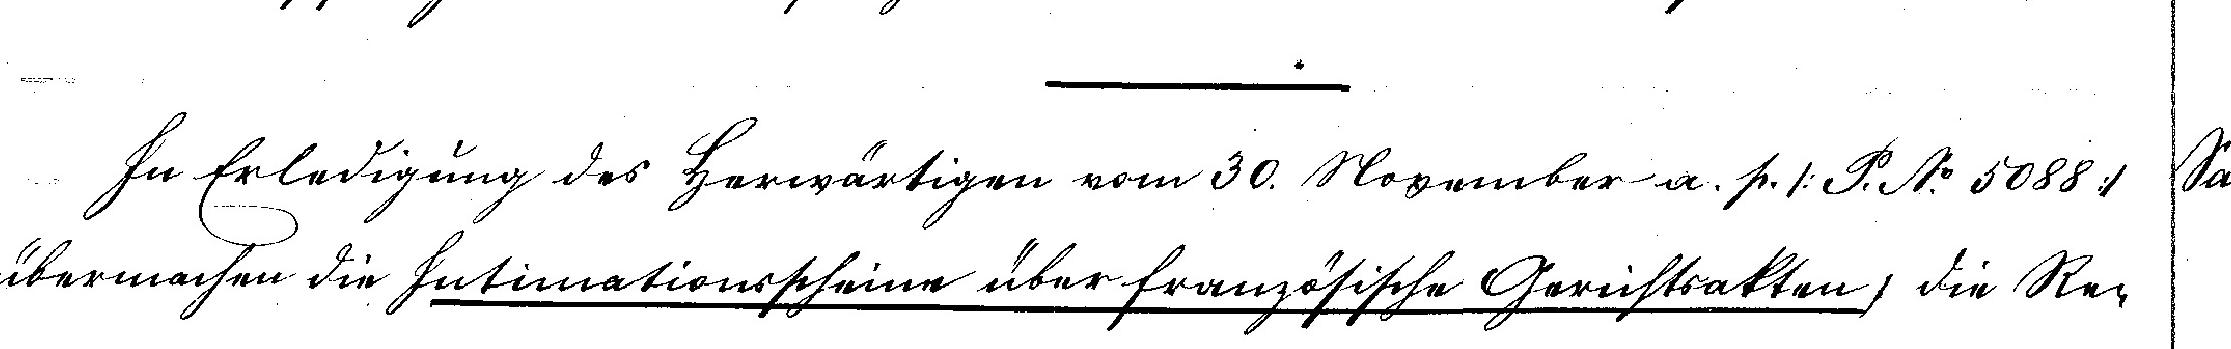 In Erledigung des Herwärtigen vom 30. November a. p. /: P. No 5088 :/
übermachen die Intimationsscheine über französische Gerichtsakten, die Re-